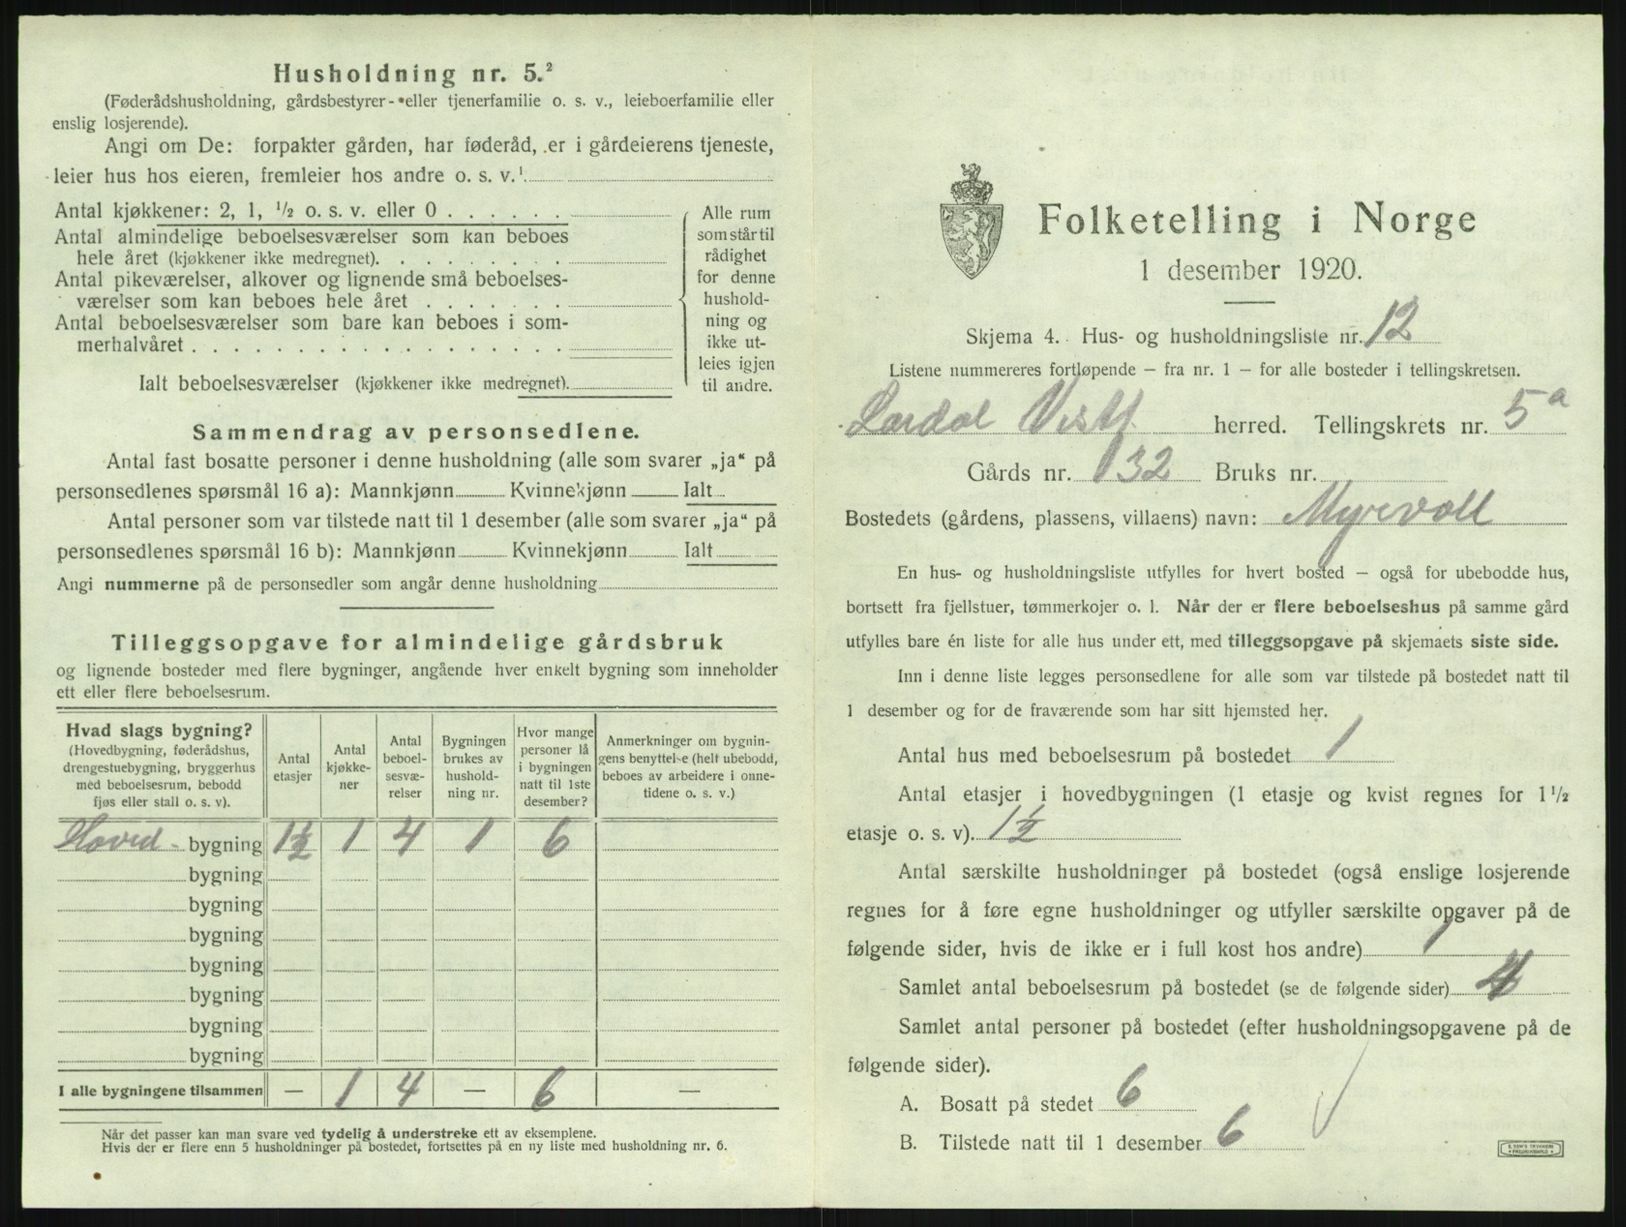 Husholdning nr. 5.²
(Føderådshusholdning, gårdsbestyrer- eller tjenerfamilie o. s. v., leieboerfamilie eller
enslig losjerende).
Angi om De: forpakter gården, har føderåd, er i gårdeierens tjeneste,
leier hus hos eieren, fremleier hos andre o. s. v.¹
Antal kjøkkener: 2, 1, ½ o. s. v. eller 0 . . . . . .
Antal almindelige beboelsesværelser som kan beboes
hele året (kjøkkener ikke medregnet). . . . . . . . .
Antal pikeværelser, alkover og lignende små beboelses-
værelser som kan beboes hele året . . . . . . .
Antal beboelsesværelser som bare kan beboes i som-
merhalvåret . . . . . . . . . . . . . . . . .
Ialt beboelsesværelser (kjøkkener ikke medregnet).
Alle rum
som står til
rådighet
for denne
hushold-
ning og
ikke ut-
leies igjen
til andre.
Sammendrag av personsedlene.
Antal fast bosatte personer i denne husholdning (alle som svarer „ja“ på
personsedlenes spørsmål 16 a): Mannkjønn Kvinnekjønn Ialt
Antal personer som var tilstede natt til 1 desember (alle som svarer „ja“ på
personsedlenes spørsmål 16 b): Mannkjønn Kvinnekjønn Ialt
Angi nummerne på de personsedler som angår denne husholdning
Tilleggsopgave for almindelige gårdsbruk
og lignende bosteder med flere bygninger, angående hver enkelt bygning som inneholder
ett eller flere beboelsesrum.
Hvad slags bygning?
(Hovedbygning, føderådshus,
drengestuebygning, bryggerhus
med beboelsesrum, bebodd
fjøs eller stall o. s. v).
Antal
etasjer
Antal
kjøkke-
ner
Antal
beboel-
sesvæ-
relser
Bygningen
brukes av
hushold-
ning nr.
Hvor mange
personer lå
i bygningen
natt til 1ste
desember?
Anmerkninger om bygnin-
gens benyttelse (helt ubebodd,
beboes av arbeidere i onne-
tidene o. s. v.)
Hoved- bygning 1½ 1 4 1 6
bygning
bygning
bygning
bygning
bygning
bygning
bygning
I alle bygningene tilsammen — 1 4 — 6 —
Når det passer kan man svare ved tydelig å understreke ett av eksemplene.
Hvis der er flere enn 5 husholdninger på bostedet, fortsettes på en ny liste med husholdning nr. 6.
Folketelling i Norge
1 desember 1920.
Skjema 4. Hus- og husholdningsliste nr. 12
Listene nummereres fortløpende — fra nr. 1 — for alle bosteder i tellingskretsen.
Lardal Vestf. herred. Tellingskrets nr. 5a
Gårds nr. 132 Bruks nr.
Bostedets (gårdens, plassens, villaens) navn: Myrevoll
En hus- og husholdningsliste utfylles for hvert bosted — også for ubebodde hus,
bortsett fra fjellstuer, tømmerkojer o. l. Når der er flere beboelseshus på samme gård
utfylles bare én liste for alle hus under ett, med tilleggsopgave på skjemaets siste side.
Inn i denne liste legges personsedlene for alle som var tilstede på bostedet natt til
1 desember og for de fraværende som har sitt hjemsted her.
Antal hus med beboelsesrum på bostedet 1
Antal etasjer i hovedbygningen (1 etasje og kvist regnes for 1½
etasje o. s. v). 1½
Antal særskilte husholdninger på bostedet (også enslige losjerende
regnes for å føre egne husholdninger og utfyller særskilte opgaver på de
følgende sider, hvis de ikke er i full kost hos andre) 1
Samlet antal beboelsesrum på bostedet (se de følgende sider) 4
Samlet antal personer på bostedet (efter husholdningsopgavene på de
følgende sider).
A. Bosatt på stedet 6
B. Tilstede natt til 1 desember 6